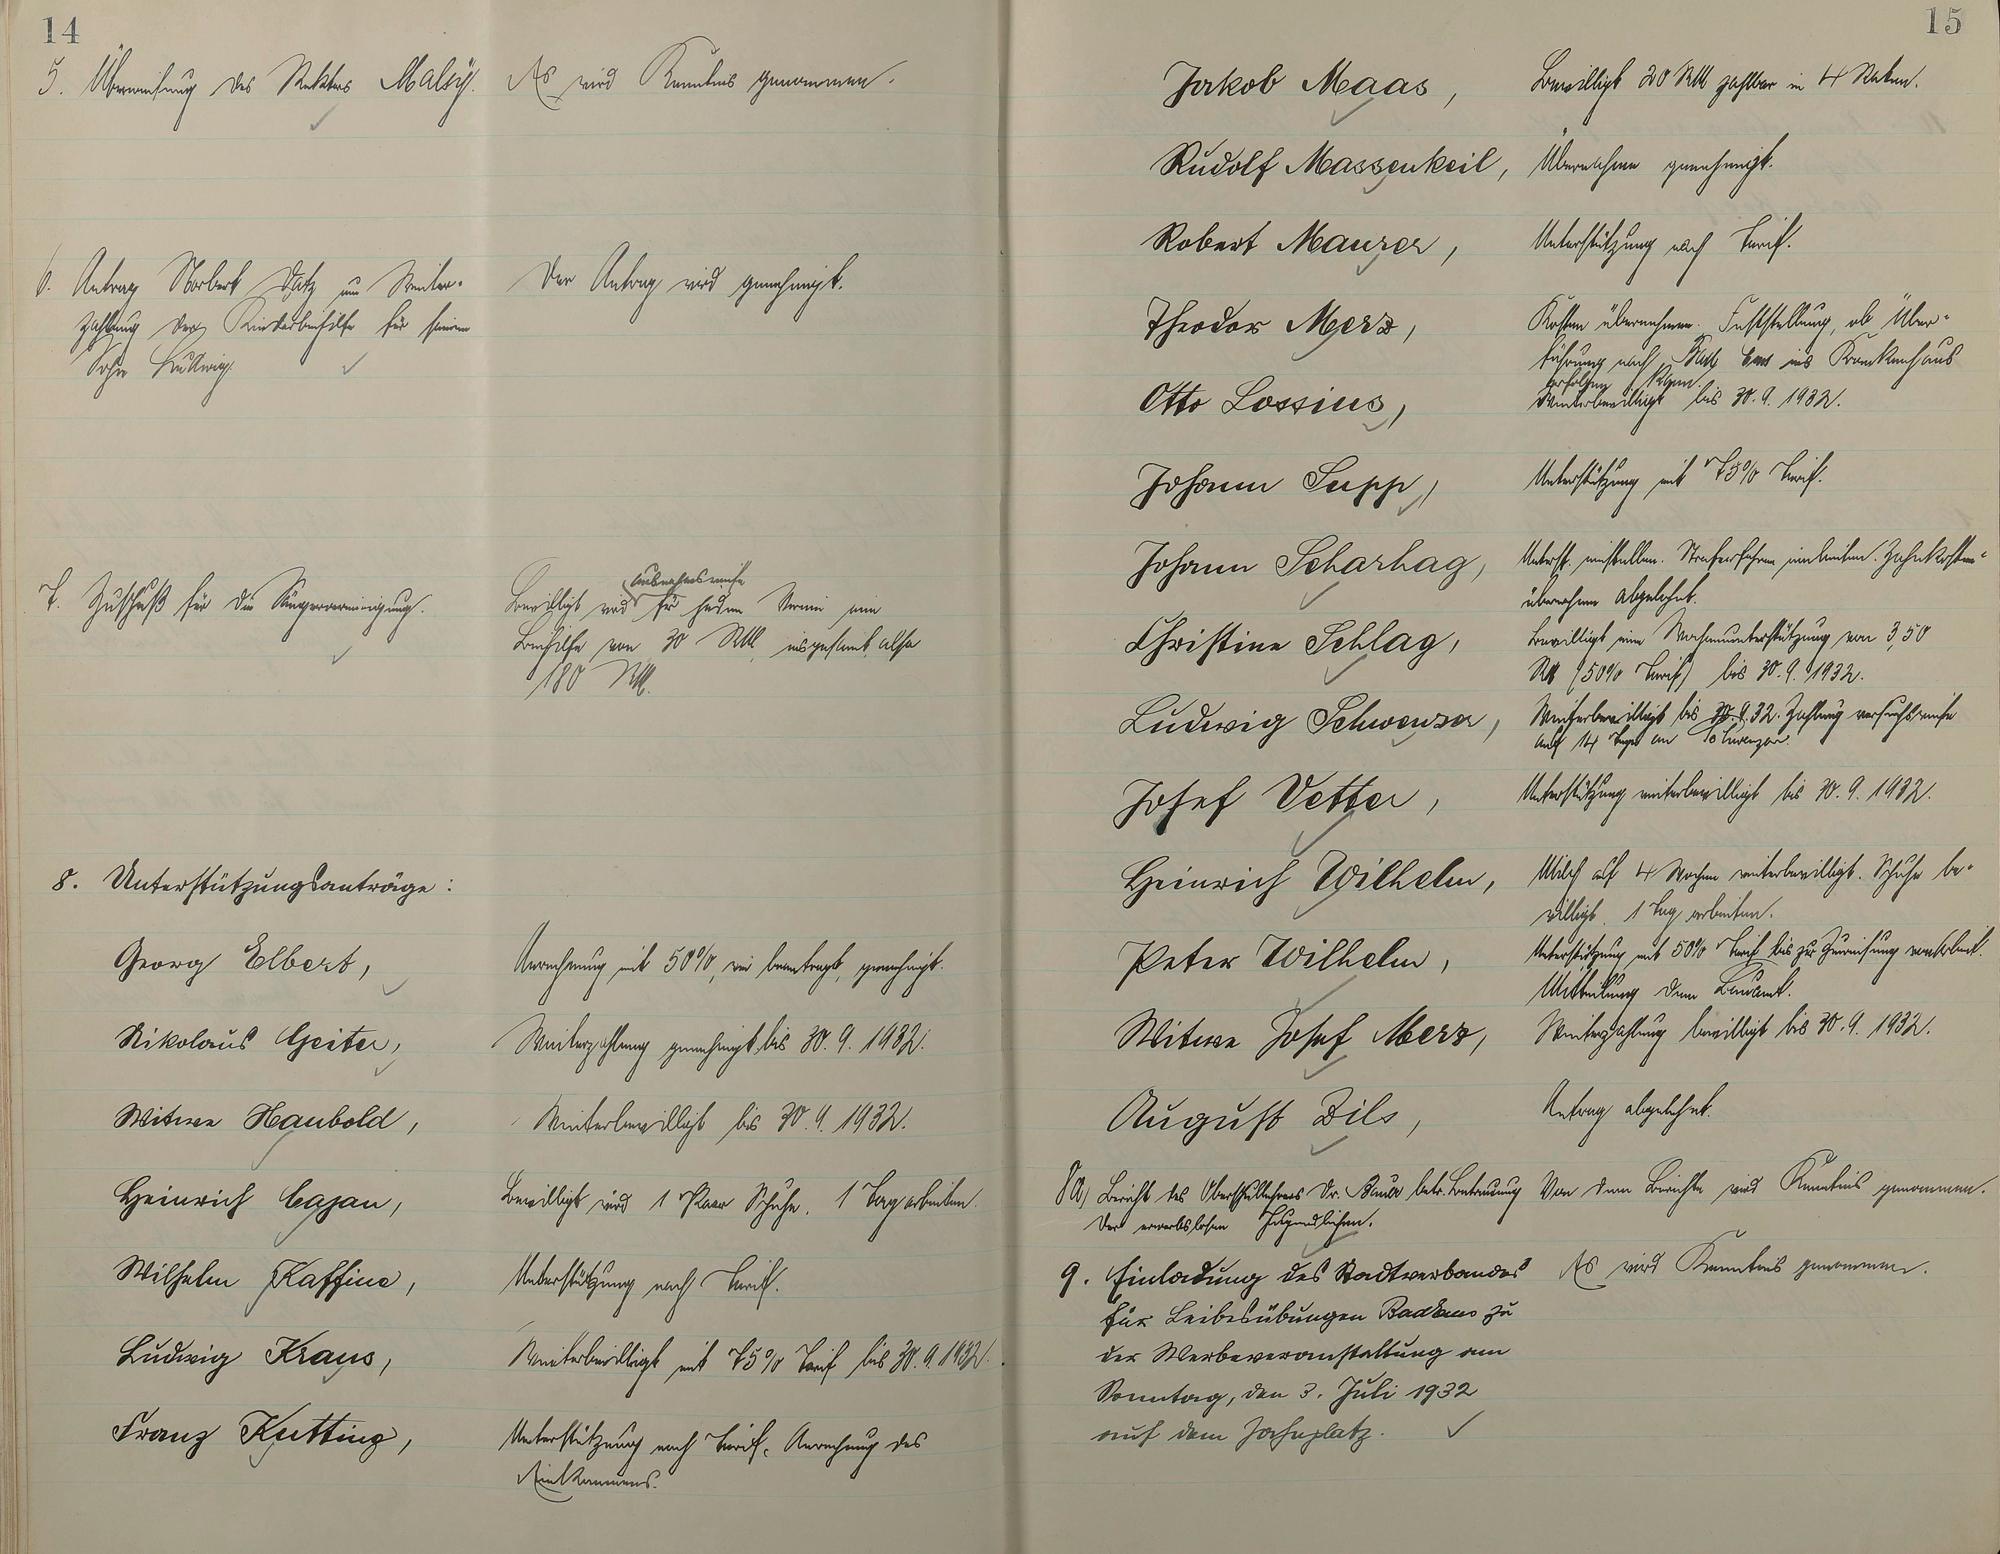 14
5. Überweisung des Rektors Malsy.
Es wird Kenntnis genommen.
6. Antrag Norbert Datz um Weiter-
zahlung der Kinderbeihilfe für seinen
Sohn Ludwig.
Der Antrag wird genehmigt.
7. Zuschuß für die Sängervereinigung.
ausnahmsweise
Bewilligt wird für jeden Verein eine
Beihilfe von 30 RM, insgesamt also
180 RM.
8. Unterstützungsanträge:
Georg Elbert,
Anrechnung mit 50%, wie beantragt, genehmigt.
Nikolaus Geiter,
Weiterzahlung genehmigt bis 30. 9. 1932.
Witwe Haubold,
Weiterbewilligt bis 30. 9. 1932.
Heinrich Cajan,
Bewilligt wird 1 Paar Schuhe. 1 Tag arbeiten.
Wilhelm Kaffine,
Unterstützung nach Tarif.
Ludwig Kraus,
Weiterbewilligt mit 75% Tarif bis 30. 9. 1932.
Franz Kutting,
Unterstützung nach Tarif. Anrechnung des
Einkommens.
15
Jakob Maas,
Bewilligt 20 RM zahlbar in 4 Raten.
Rudolf Massenkeil,
Übernahme genehmigt.
Robert Maurer,
Unterstützung nach Tarif.
Theodor Merz,
Kosten übernehmen. Feststellung, ob Über-
führung nach Bad Ems ins Krankenhaus
erfolgen kann.
Otto Lossius,
Weiterbewilligt bis 30. 9. 1932.
Johann Supp,
Unterstützung mit 75% Tarif.
Johann Scharhag,
Unterst. einstellen. Strafverfahren einleiten. Zahnkosten-
übernahme abgelehnt.
Christine Schlag,
Bewilligt eine Wochenunterstützung von 3,50
RM (50% Tarif) bis 30. 9. 1932.
Ludwig Schwenzer,
Weiterbewilligt bis 30. 9. 32. Zahlung versuchsweise
auf 14 Tage an Schwenzer.
Josef Vetter,
Unterstützung weiterbewilligt bis 30. 9. 1932.
Heinrich Wilhelm,
Milch auf 4 Wochen weiterbewilligt. Schuhe be-
willigt. 1 Tag arbeiten.
Peter Wilhelm,
Unterstützung mit 50% Tarif bis zur Zuweisung von Arbeit.
Mitteilung dem Bauamt.
Witwe Josef Merz,
Weiterzahlung bewilligt bis 30. 9. 1932.
August Zils,
Antrag abgelehnt.
8a) Bericht des Oberschullehrers Dr. Baur betr. Betreuung
der erwerbslosen Jugendlichen.
Von dem Berichte wird Kenntnis genommen.
9. Einladung des Stadtverbandes
für Leibesübungen Bad Ems zu
der Werbeveranstaltung am
Sonntag, den 3. Juli 1932
auf dem Jahnplatz.
Es wird Kenntnis genommen.